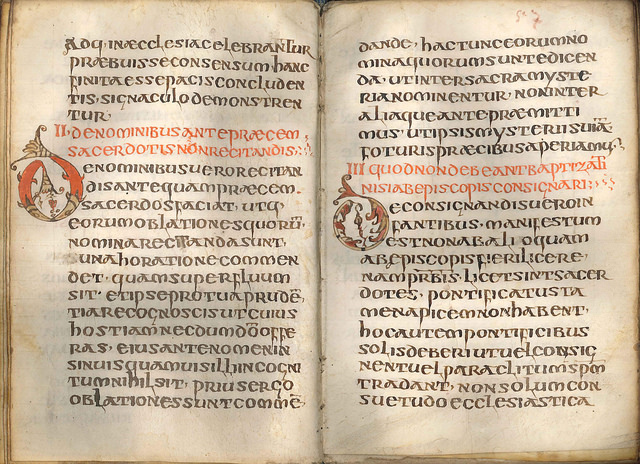 Adq· inaecclesiacelebrantur
praebuisseconsensum· hanc
finitaessepacisconcluden
tis· signaculodemonstren
tur
II· denominibusantepraecem
sacerdotisnonrecitandis
Denominibusuerorecitan
disantequampraecem
sacerdosfaciat· utq·
eorumoblationesquorū
nominarecitandasunt·
suahorationecommen
det· quamsuperfluum
sit· etipseprotuaprudē
tiarecognoscisutcuius
hostiamnecdumdōoffe
ras· eiusantenomenin
sinuisquamuisillhincogni
tumnihilsit· priusergo
oblationessuntcommē
dande· hactunceorumno
minaquorumsuntedicen
da· utintersacramyste
rianominentur· noninter
aliaqueantepraemitti
mus· utipsismysteriisuiā
foturispraecibusaperiamus·
III quodnondebeantbaptizati
nisiabepiscopisconsignari
Deconsignandisueroin
fantibus· manifestum
estnonabalioquam
abepiscopisfierilicere·
namprbīs· licetsintsacer
dotes· pontificatusta
menapicemnonhabent·
hocautempontificibus
solisdeberiutuelconsig
nentuelparaclitumspm̄
tradant· nonsolumcon
suetudoecclesiastica